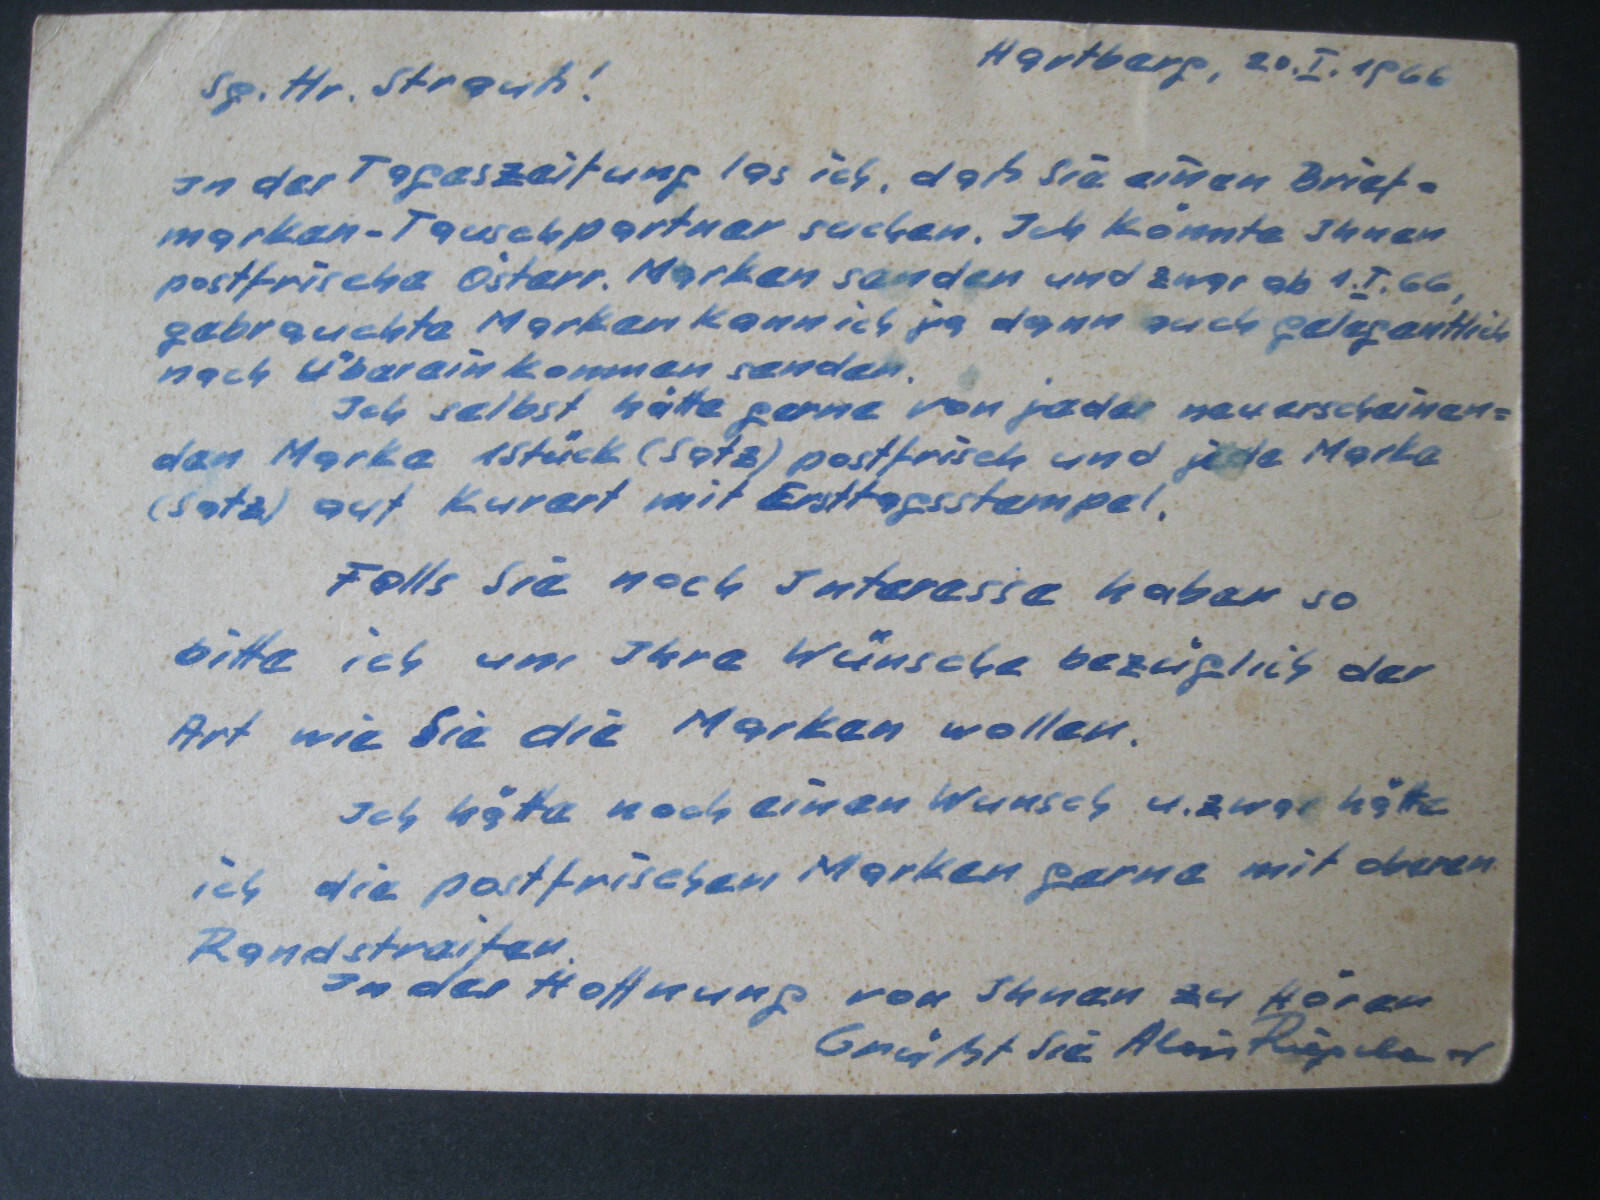 Hartberg, 20.I.1966
Sg. Hr. Strauß!
In der Tageszeitung las ich, daß Sie einen Brief=
marken-Tauschpartner suchen. Ich könnte Ihnen
postfrische Österr. Marken senden und zwar ab 1.I.66,
gebrauchte Marken kann ich ja dann auch gelegentlich
nach Übereinkommen senden.
Ich selbst hätte gerne von jeder neuerscheinen=
den Marke 1Stück (Satz) postfrisch und jede Marke
(Satz) auf Kuvert mit Ersttagsstempel.
Falls Sie noch Interesse haben so
bitte ich um Ihre Wünsche bezüglich der
Art wie Sie die Marken wollen.
Ich hätte noch einen Wunsch u. zwar hätte
ich die postfrischen Marken gerne mit oberen
Randstreifen.
In der Hoffnung von Ihnen zu Hören
Grüßt Sie Alois